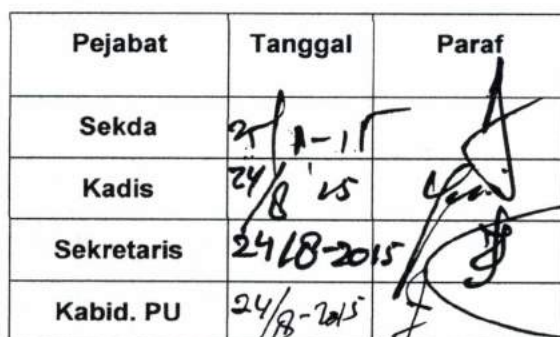 Pejabat Tanggal Paraf
Sekda
Kadis 24/8 '15
Sekretaris 24/8-2015
Kabid. PU 24/8-2015